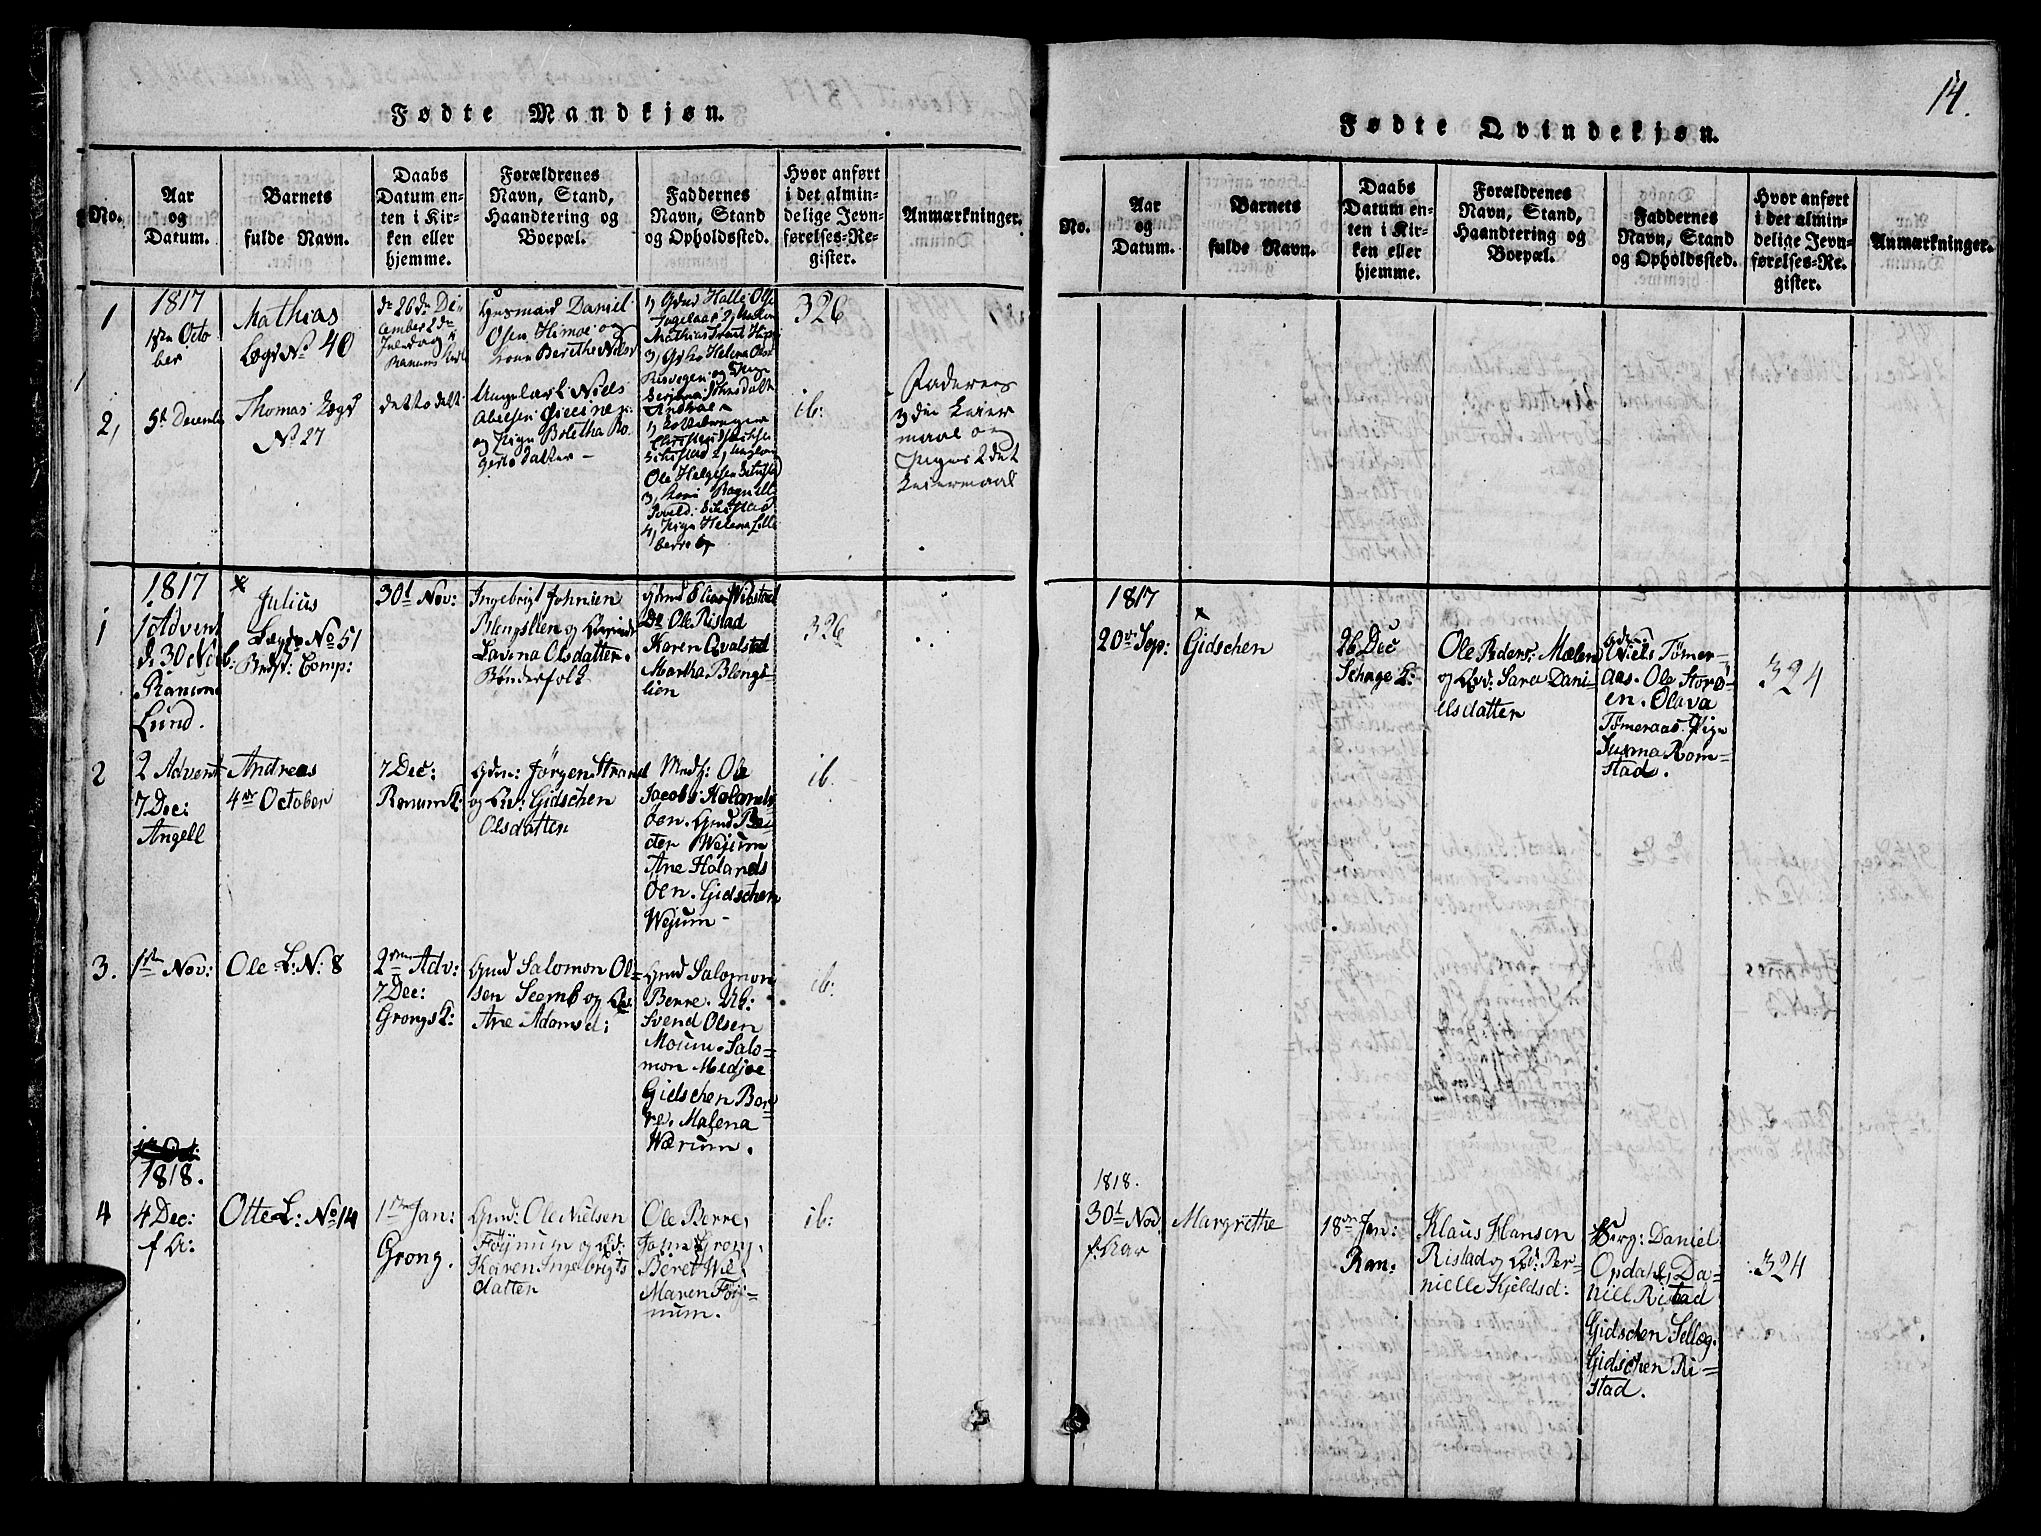 14.
Fødte Mandkjøn.
No.
Aar
og
Datum.
Barnets
fulde Navn.
Daabs
Datum en-
ten i Kir-
ken eller
hjemme.
Forældrenes
Navn, Stand,
Haandtering og
Boepæl.
Faddernes
Navn, Stand
og Opholdssted.
Hvor anført
i det almin-
delige Jevn-
førelses-Re-
gister.
Anmærkninger.
1
1817
Octo
ber
Mathias
Logd No 40
de 26de De
cember 2den
Juledag i
Ranums
Huusmand Daniel
Olsen Himoe og
Kone Berethe Niels
1, Gdmd Halle Ols
Mathias
3, Helena Olsd
og
326
2,
5te Decembr
Thomas Logd
No 27
detto
Ungkarl Niels
Abelsen
og Pige Boletha Ro
gersdatter
Ole Helgesen
3, Kone Ragnill
4, Pige Helena Lille
berre
ib:
Faderens
3die Leier
maal og
Pigens 2det
Leiermaal
1
1817
1 Advent
d: 30 Nov:
Ranum
Lund.
x
Julius
Lægds No 51
Comp:
30t Nov:
Ingebrigt Johnsen
Blengslien og
Lavina Olsdatter.
Bønderfolk
Gmd Elias Wibstad
Do Ole Ristad
Karen Qvalstad
Martha Blengs-
lien
326
2
2 Advent
7 Dec:
Angell
Andreas
4de October
7 Dec:
Ranum K:
Gdm: Jørgen Strand
og Qv: Gidschen
Olsdatter
Ole
Jacobs: Holands-
öen. Gmd Pe-
der Wejum
Ane Holands
Öen. Gidschen
Wejum -
ib.
3.
1ste Nov:
Ole L: N: 8
2den Adv:
7 Dec:
Grongs K:
Gmd Salomon Ol=
sen Seem og Qv:
Ane Adamsd:
Gmd Salomon
Berre. Uk:
Svend Olsen
Moum. Salo=
mon Medjae
Gidschen Ber
re. Malena
Wærum.
ib:
1818.
4
4 Dec:
f A:
Otte L: No 14
1ste Jan:
Grong.
Gmd: Ole Nielsen
Föÿnum og Qv:
Karen Ingebrigts
datter
Ole Berre,
John Grong,
Beret Wie,
Maren Föÿ-
num.
ib:
Fødte Qvindekjøn.
No.
Aar
og
Datum.
Barnets
fulde Navn.
Daabs
Datum en-
ten i Kir-
ken eller
hjemme.
Forældrenes
Navn, Stand,
Haandtering og
Boepæl.
Faddernes
Navn, Stand
og Opholdssted.
Hvor anført
i det almin-
delige Jevn-
førelses-Re-
gister.
Anmærkninger.
1817
20de Sep:
x
Gidschen
26 Dec
Sehage K:
Ole Peders: Mælen
og Qv: Sara Dani-
elsdatter
Gdm:
Niels Tømer-
aas. Ole Storø-
en. Olava
Tømeraas. Pige
Susna Rom-
stad.
324
1818.
30t Nov
f: Aar
Margrethe
18de Jan:
Ran:
Klaus Hansen
Ristad og Qv: Per-
nielle Kjeldsd:
Berg: Daniel
Opdahl, Da=
niel Ristad
Gidschen Sellæg.
Gidschen Ri-
stad.
324